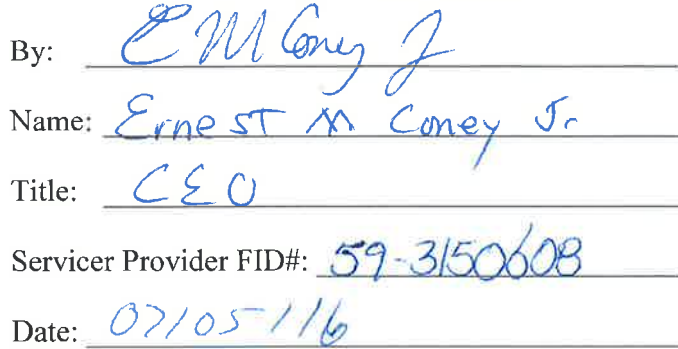 By: E M Coney J
Name: Ernest M Coney Jr
Title: CEO
Servicer Provider FID#: 59-3150608
Date: 07/05/16